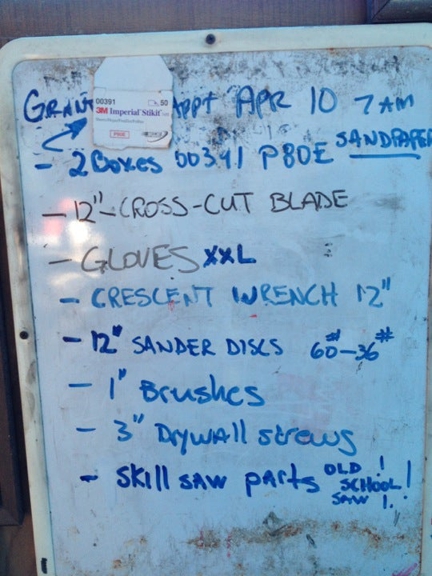 00391 50
3M Imperial Stikit
P80E
GRANT APPT APR 10 7 AM
- 2 Boxes 00391 P80E SANDPAPER
- 12" CROSS-CUT BLADE
- GLOVES XXL
- CRESCENT WRENCH 12"
- 12" SANDER DISCS 60# - 36#
- 1" Brushes
- 3" Drywall screws
- Skill saw parts OLD !
SCHOOL !
SAW !